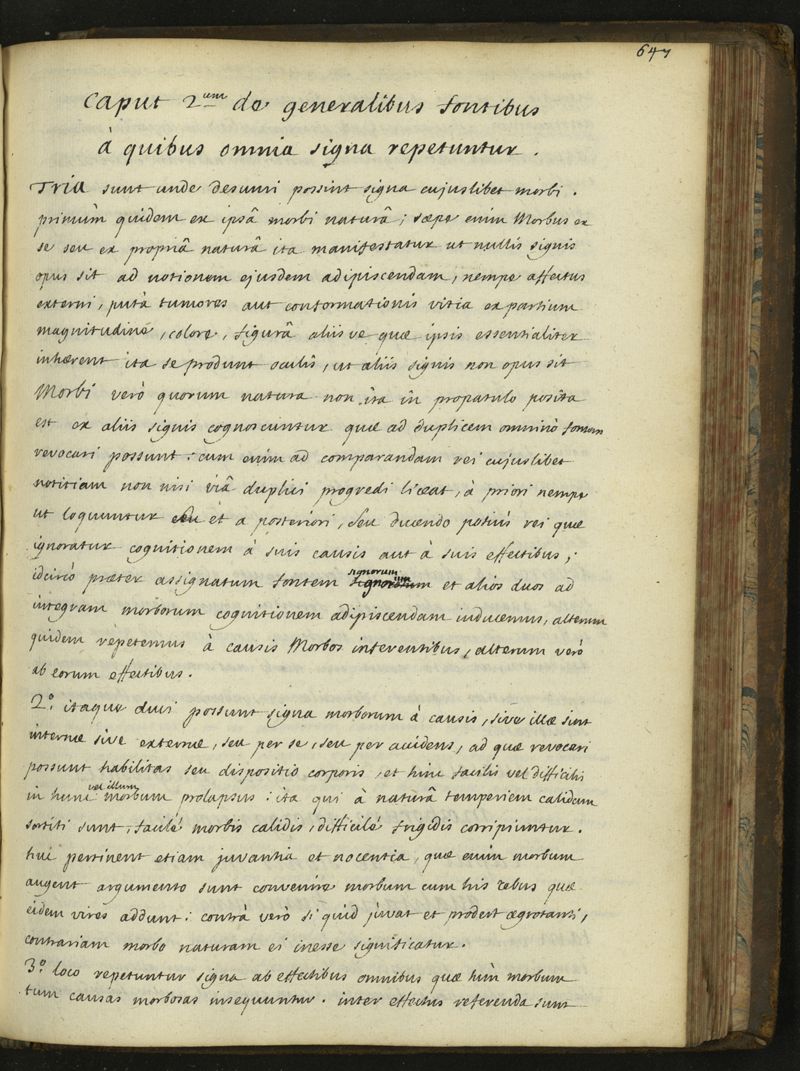 647
Caput 2um de generalibus fontibus
à quibus omnia signa repetuntur.
Tria sunt unde desumi possint signa cujuslibet morbi.
primum quidem ex ipsâ morbi naturâ; sæpe enim Morbus ex
se seu ex propriâ naturâ ita manifestatur ut nullis signis
opus sit ad notionem ejusdem adipiscendam, nempe affectus
externi, putà tumores aut conformationis vitia ex partium
magnitudine, colore, figurâ aliis ve quæ ipsis essentialiter
inhærent ita se produnt oculis, ut aliis signis non opus sit
Morbi verò quorum natura non ita in propatulo posita
est ex aliis signis cognoscuntur quæ ad duplicem omninò fontem
revocari possunt: cum enim ad comparandam rei cujuslibet
notitiam non nisi viâ duplici progredi liceat, à priori nempe
ut loquuntur et a posteriori, seu ducendo potius rei quæ
ignoratur cognitionem à suis causis aut à suis effectibus;
idcircò præter assignatum fontem signorum et alios duos ad
integram morborum cognitionem adipiscendam inducemus, alterum
quidem repetemus à causis Morbos inferentibus, alterum verò
ab eorum effectibus.
2o. itaque duci possunt signa morborum à causis, sive illæ sint
internæ sive externæ, seu per se, seu per accidens, ad quæ revocari
possunt habilitas seu dispositio corporis, et hinc facilis vel difficilis
in hunc vel illum morbum prolapsus: ita qui à naturâ temperiem calidam
sortiti sunt, facilè morbis calidis, difficilè frigidis corripiuntur.
huc pertinent etiam juvantia et nocentia, quæ enim morbum
augent argumento sunt convenire morbum cum his rebus quæ
eidem vires addunt: contrà verò si quid juvat et prodest ægrotanti,
contrariam morbo naturam ei inesse significatur.
3o. loco repetuntur signa ab effectibus omnibus quæ tùm morbum
tum causas morbosas insequuntur. inter effectus referenda sunt